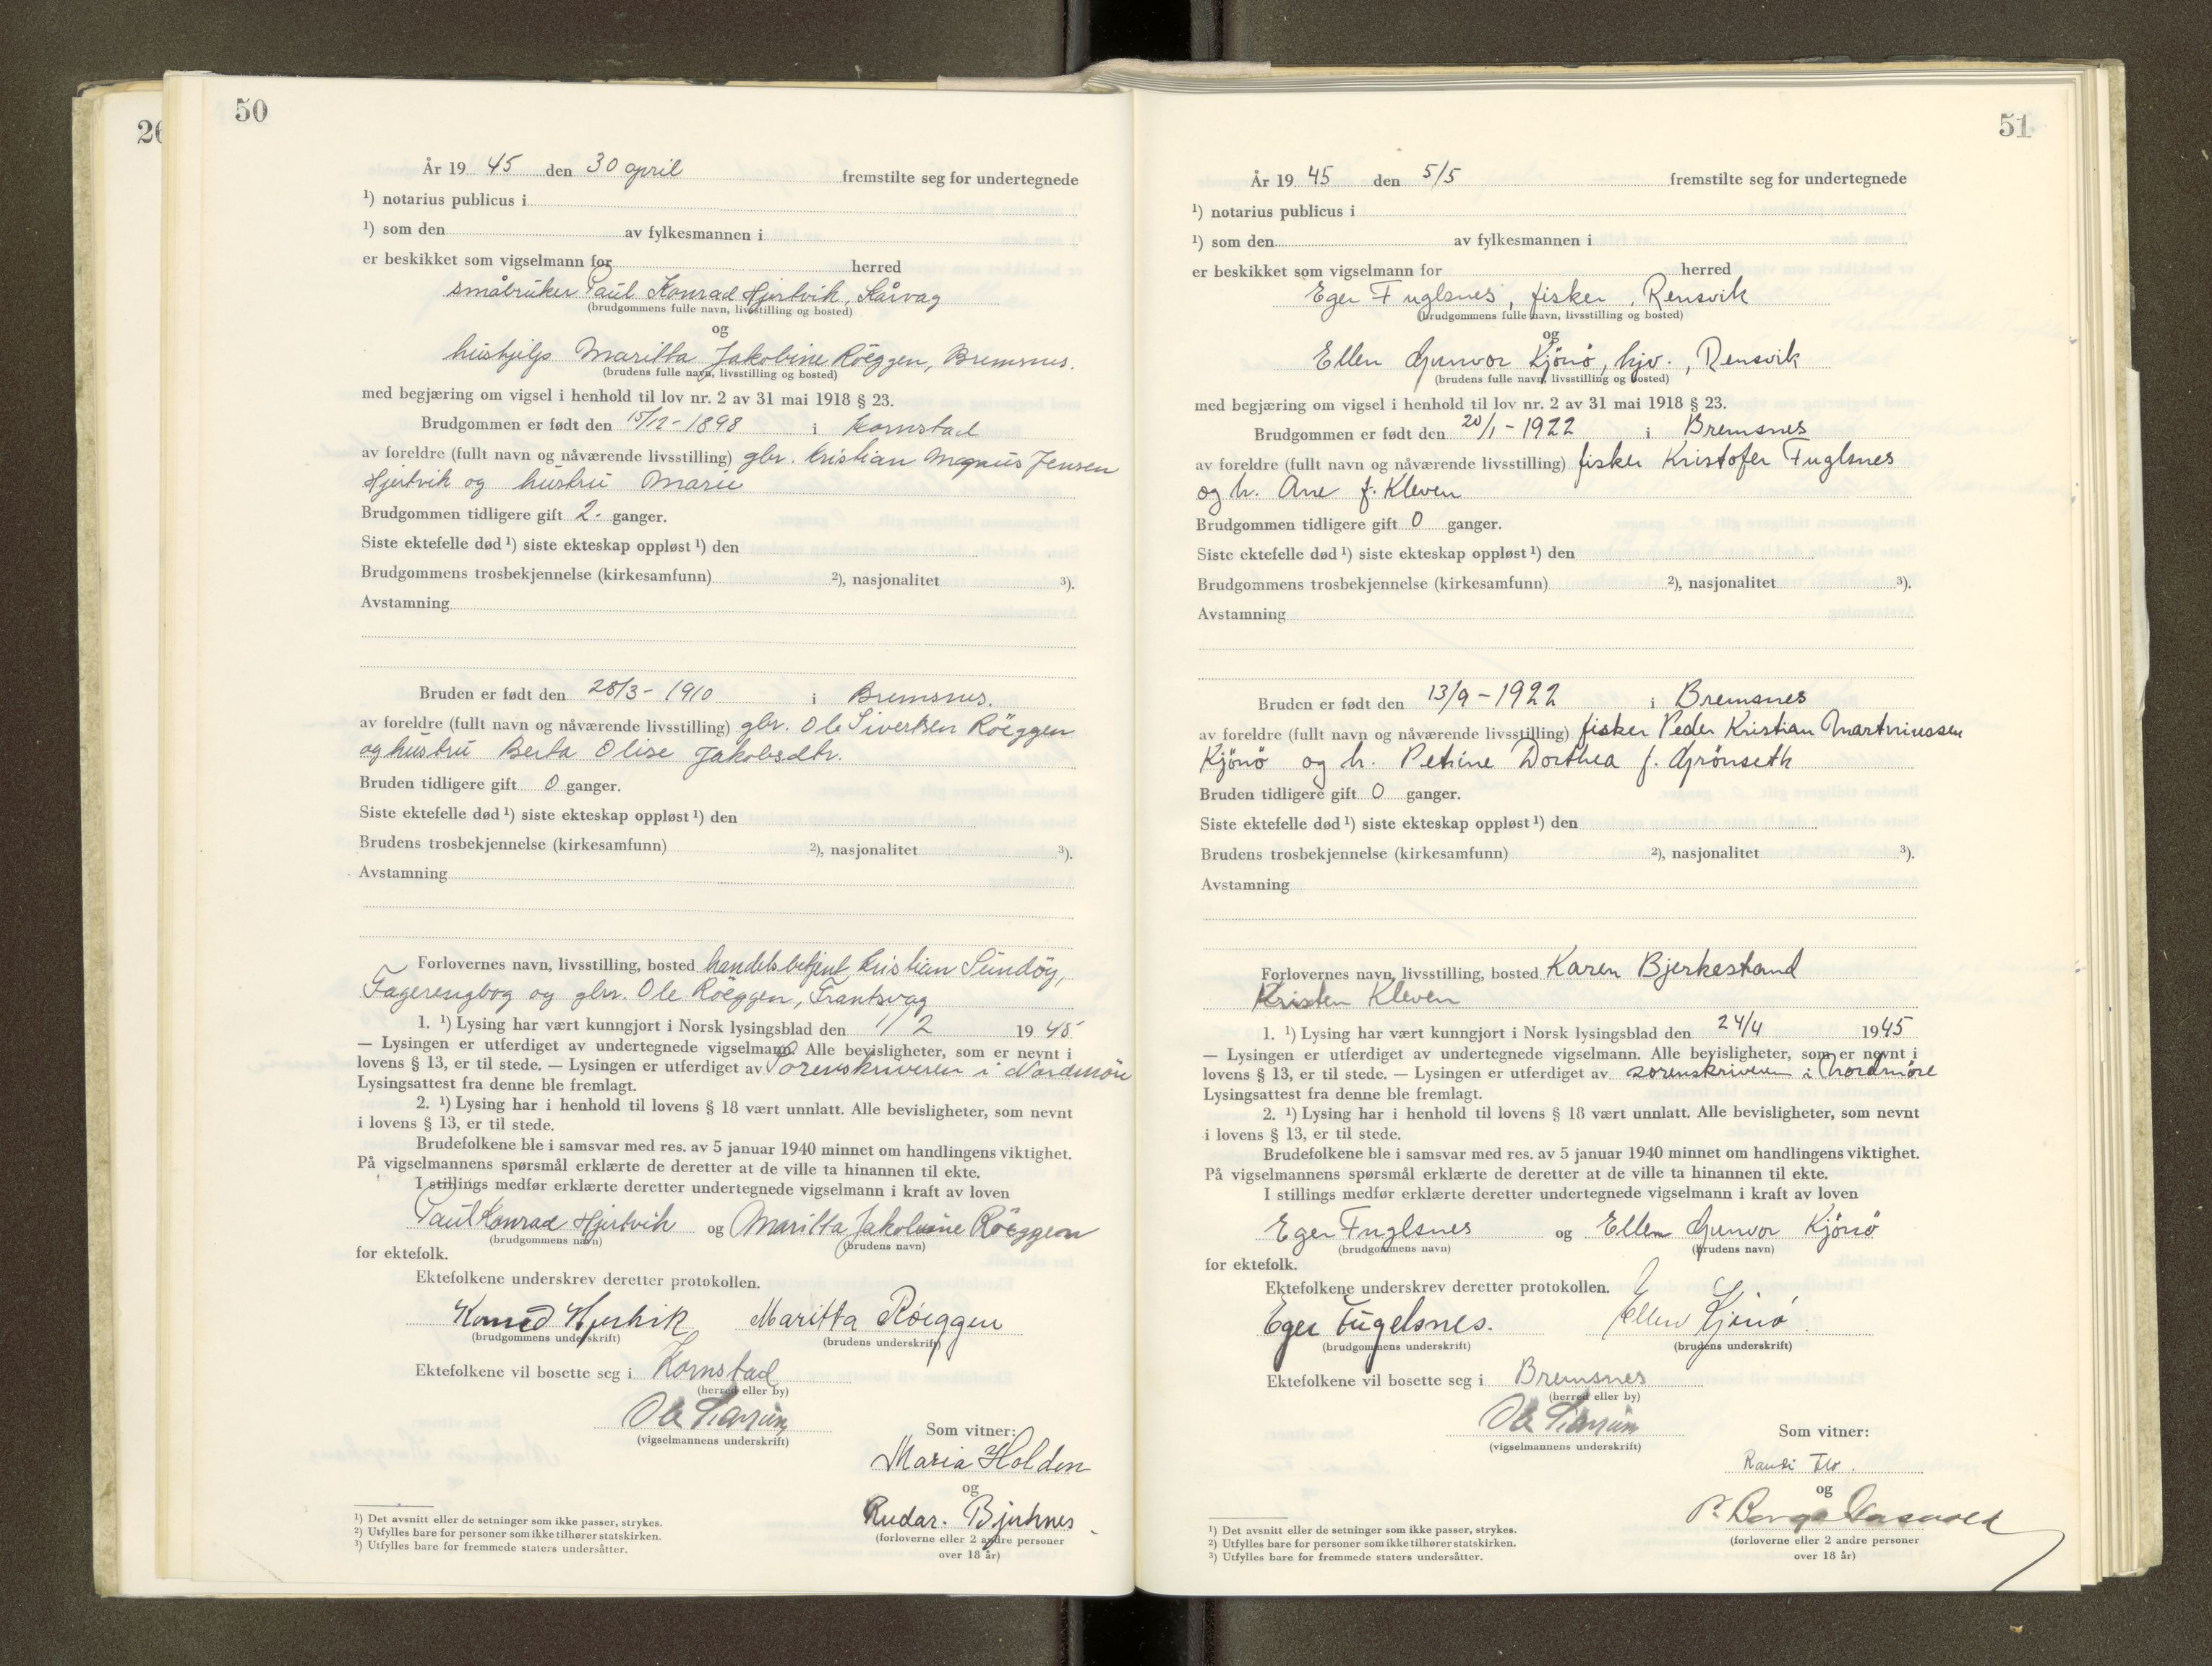 26
50
År 19 45 den 30 april fremstilte seg for undertegnede
¹) notarius publicus i
¹) som den av fylkesmannen i
er beskikket som vigselmann for herred
småbruker Paul Konrad Hjertvik, Kårvag
(brudgommens fulle navn, livsstilling og bosted)
og
hushjelp Maritta Jakobine Röeggen, Bremsnes.
(brudens fulle navn, livsstilling og bosted)
med begjæring om vigsel i henhold til lov nr. 2 av 31 mai 1918 § 23.
Brudgommen er født den 15/12 - 1898 i Kornstad
av foreldre (fullt navn og nåværende livsstilling) gbr. Kristian Magnus Jensen
Hjertvik og hustru Marie
Brudgommen tidligere gift 2. ganger.
Siste ektefelle død ¹) siste ekteskap oppløst ¹) den
Brudgommens trosbekjennelse (kirkesamfunn) ²), nasjonalitet ³).
Avstamning
Bruden er født den 28/3 - 1910 i Bremsnes.
av foreldre (fullt navn og nåværende livsstilling) gbr. Ole Sivertsen Röeggen
og hustru Berta Olise Jakobsdtr.
Bruden tidligere gift 0 ganger.
Siste ektefelle død ¹) siste ekteskap oppløst ¹) den
Brudens trosbekjennelse (kirkesamfunn) ²), nasjonalitet ³).
Avstamning
Forlovernes navn, livsstilling, bosted handelsbetjent Kristian Sundöy,
Fagerengbog og gbr. Ole Röeggen, Frantsvag
1. ¹) Lysing har vært kunngjort i Norsk lysingsblad den 1/2 19 45
— Lysingen er utferdiget av undertegnede vigselmann. Alle bevisligheter, som er nevnt i
lovens § 13, er til stede. — Lysingen er utferdiget av Sorenskriveren i Nordmöre
Lysingsattest fra denne ble fremlagt.
2. ¹) Lysing har i henhold til lovens § 18 vært unnlatt. Alle bevisligheter, som nevnt
i lovens § 13, er til stede.
Brudefolkene ble i samsvar med res. av 5 januar 1940 minnet om handlingens viktighet.
På vigselmannens spørsmål erklærte de deretter at de ville ta hinannen til ekte.
I stillings medfør erklærte deretter undertegnede vigselmann i kraft av loven
Paul Konrad Hjertvik og Maritta Jakobine Röeggen
(brudgommens navn) (brudens navn)
for ektefolk.
Ektefolkene underskrev deretter protokollen.
Konrad Hjertvik Maritta Röeggen
(brudgommens underskrift) (brudens underskrift)
Ektefolkene vil bosette seg i Kornstad
(herred eller by)
Ole
(vigselmannens underskrift)
Som vitner:
Maria Holden
og
Rudar. Bjerknes
(forloverne eller 2 andre personer
over 18 år)
¹) Det avsnitt eller de setninger som ikke passer, strykes.
²) Utfylles bare for personer som ikke tilhører statskirken.
³) Utfylles bare for fremmede staters undersåtter.
51
År 19 45 den 5/5 fremstilte seg for undertegnede
¹) notarius publicus i
¹) som den av fylkesmannen i
er beskikket som vigselmann for herred
Eger Fuglsnes, fisker, Rensvik
(brudgommens fulle navn, livsstilling og bosted)
og
Ellen Gunvor Kjönö, hjv., Rensvik
(brudens fulle navn, livsstilling og bosted)
med begjæring om vigsel i henhold til lov nr. 2 av 31 mai 1918 § 23.
Brudgommen er født den 20/1 - 1922 i Bremsnes
av foreldre (fullt navn og nåværende livsstilling) fisker Kristofer Fuglsnes
og h. Ane f. Kleven
Brudgommen tidligere gift 0 ganger.
Siste ektefelle død ¹) siste ekteskap oppløst ¹) den
Brudgommens trosbekjennelse (kirkesamfunn) ²), nasjonalitet ³).
Avstamning
Bruden er født den 13/9 - 1922 i Bremsnes
av foreldre (fullt navn og nåværende livsstilling) fisker Peder Kristian Martinussen
Kjönö og h. Petrine Dorthea f. Grönseth
Bruden tidligere gift 0 ganger.
Siste ektefelle død ¹) siste ekteskap oppløst ¹) den
Brudens trosbekjennelse (kirkesamfunn) ²), nasjonalitet ³).
Avstamning
Forlovernes navn, livsstilling, bosted Karen Bjerkestand
Kristen Kleven
1. ¹) Lysing har vært kunngjort i Norsk lysingsblad den 24/4 1945
— Lysingen er utferdiget av undertegnede vigselmann. Alle bevisligheter, som er nevnt i
lovens § 13, er til stede. — Lysingen er utferdiget av sorenskriveren i Nordmöre
Lysingsattest fra denne ble fremlagt.
2. ¹) Lysing har i henhold til lovens § 18 vært unnlatt. Alle bevisligheter, som nevnt
i lovens § 13, er til stede.
Brudefolkene ble i samsvar med res. av 5 januar 1940 minnet om handlingens viktighet.
På vigselmannens spørsmål erklærte de deretter at de ville ta hinannen til ekte.
I stillings medfør erklærte deretter undertegnede vigselmann i kraft av loven
Eger Fuglsnes og Ellen Gunvor Kjönö
(brudgommens navn) (brudens navn)
for ektefolk.
Ektefolkene underskrev deretter protokollen.
Eger Fugelsnes. Ellen Kjönö.
(brudgommens underskrift) (brudens underskrift)
Ektefolkene vil bosette seg i Bremsnes
(herred eller by)
Ole
(vigselmannens underskrift)
Som vitner:
Randi Flo.
og
(forloverne eller 2 andre personer
over 18 år)
¹) Det avsnitt eller de setninger som ikke passer, strykes.
²) Utfylles bare for personer som ikke tilhører statskirken.
³) Utfylles bare for fremmede staters undersåtter.